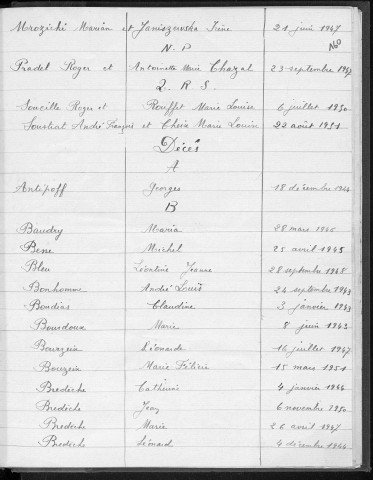 Mrozicki Marian et Janiszewska Irène 21 juin 1947
N-P
Pradel Roger et Antoinette Marie Chazal 23 septembre 1947
Q. R S.
Souville Roger et Rouffet Marie Louise 6 juillet 1950
Soustrat André François et Marie Louise 22 août 1951
Décès
A
Antipoff Georges 18 décembre 1944
B
Baudry Maria 28 mars 1945
Bene Michel 25 avril 1945
Bleu Léontine Jeanne 28 septembre 1948
Bonhomme André Louis 24 septembre 1943
Boudins Claudine 3 janvier 1943
Bourdoux Marie 8 juin 1943
Bourzein Léonarde 16 juillet 1947
Bouzein Marie Félicie 15 mars 1951
Bredèche Catherine 4 janvier 1944
Bredèche Jean 6 novembre 1950
Bredèche Marie 26 avril 1947
Bredèche Léonard 4 décembre 1944